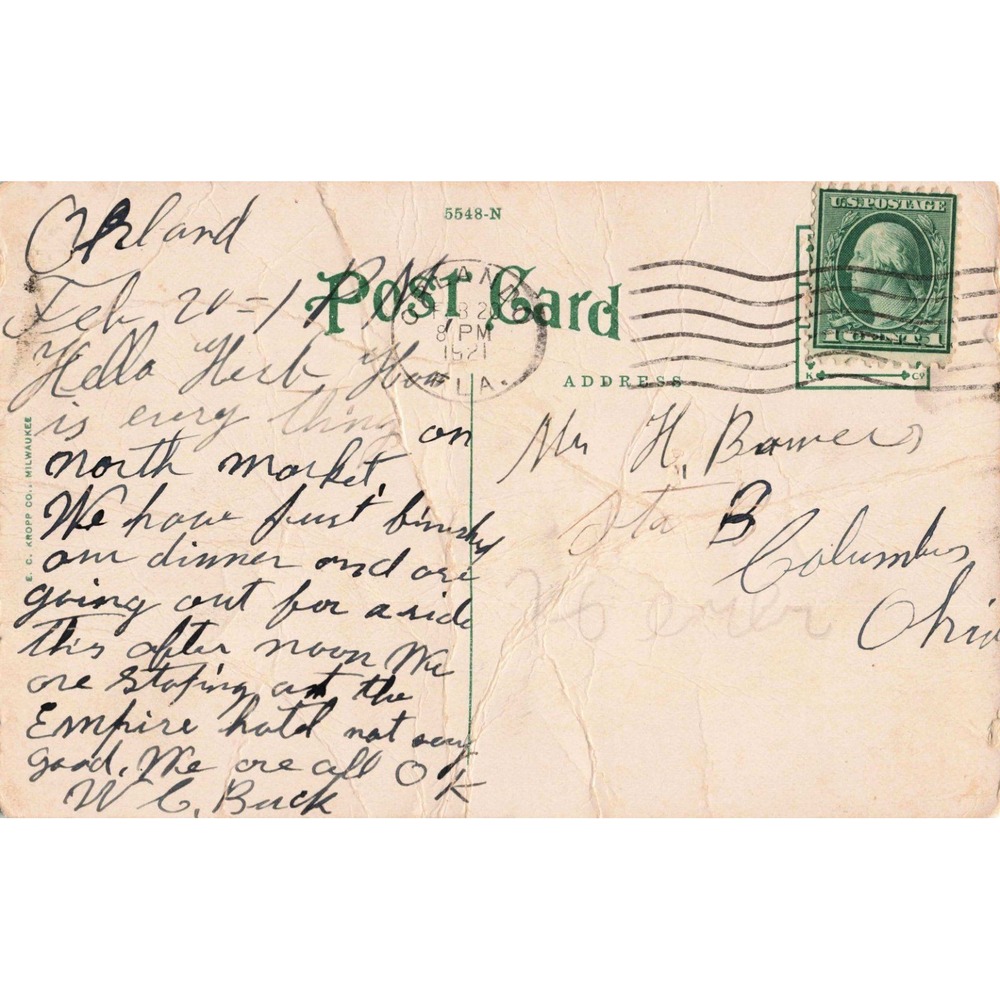 Orland
Feb 20-1 P.M.
Hello Herb, How
is every thing on
north market,
We have just finishd
our dinner and are
going out for a ride
this after noon We
are Staping at the
Empire hotel not very
good. We are all OK
W C. Buck
5548-N
Post Card
ORLANDO
FEB 2
8 PM
1921
FLA.
U.S. POSTAGE
1 CENTS 1
K Co
ADDRESS
Mr H. Bowers
Sta B
Columbus
Ohio
E. C. KROPP CO., MILWAUKEE